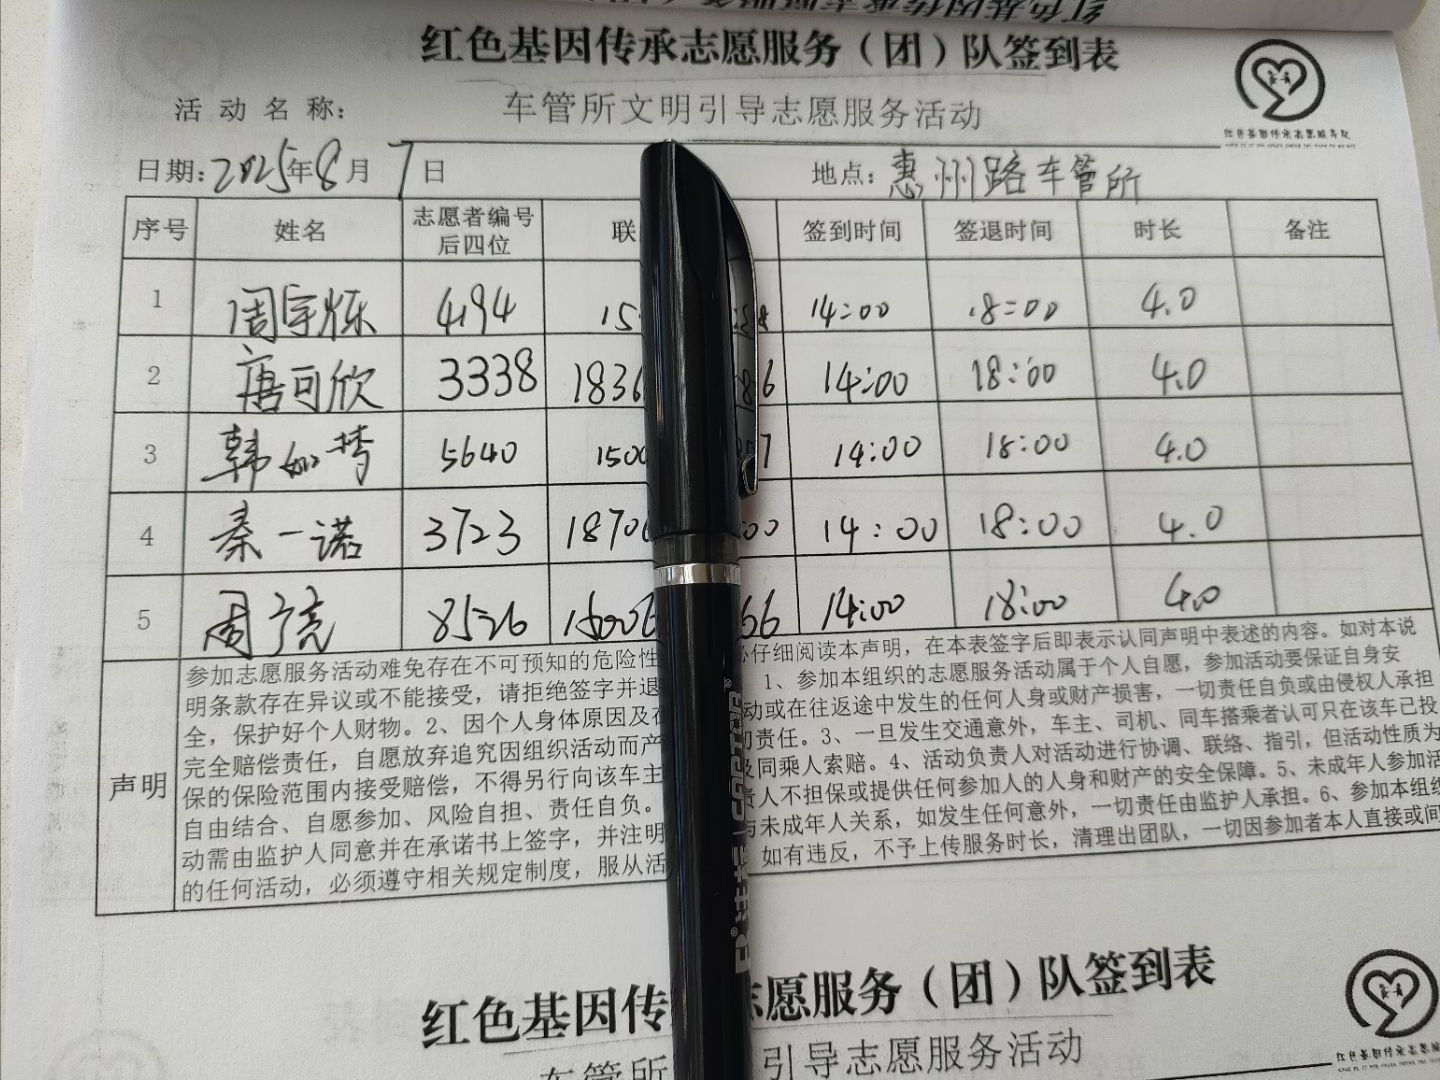 红色基因传承志愿服务（团）队签到表
活 动 名 称： 车管所文明引导志愿服务活动
红色基因传承志愿服务队
日期：2025年8月7日 地点：惠州路车管所
序号 姓名 志愿者编号后四位 联 签到时间 签退时间 时长 备注
1 周宇烁 4194 15 14:00 18:00 4.0
2 唐可欣 3338 1836 86 14:00 18:00 4.0
3 韩如梦 5640 1500 7 14:00 18:00 4.0
4 秦一诺 3723 1870 00 14:00 18:00 4.0
5 周 8526 66 14:00 18:00 4.0
声明
参加志愿服务活动难免存在不可预知的危险性 仔细阅读本声明，在本表签字后即表示认同声明中表述的内容。如对本说
明条款存在异议或不能接受，请拒绝签字并退 1、参加本组织的志愿服务活动属于个人自愿，参加活动要保证自身安
全，保护好个人财物。2、因个人身体原因及在 动或在往返途中发生的任何人身或财产损害，一切责任自负或由侵权人承担
完全赔偿责任，自愿放弃追究因组织活动而产 切责任。3、一旦发生交通意外，车主、司机、同车搭乘者认可只在该车已投
保的保险范围内接受赔偿，不得另行向该车主 及同乘人索赔。4、活动负责人对活动进行协调、联络、指引，但活动性质为
自由结合、自愿参加、风险自担、责任自负。 责人不担保或提供任何参加人的人身和财产的安全保障。5、未成年人参加活
动需由监护人同意并在承诺书上签字，并注明 与未成年人关系，如发生任何意外，一切责任由监护人承担。6、参加本组织
的任何活动，必须遵守相关规定制度，服从活 如有违反，不予上传服务时长，清理出团队，一切因参加者本人直接或间
红色基因传 志愿服务（团）队签到表
车管所 引导志愿服务活动
红色基因传承志愿服